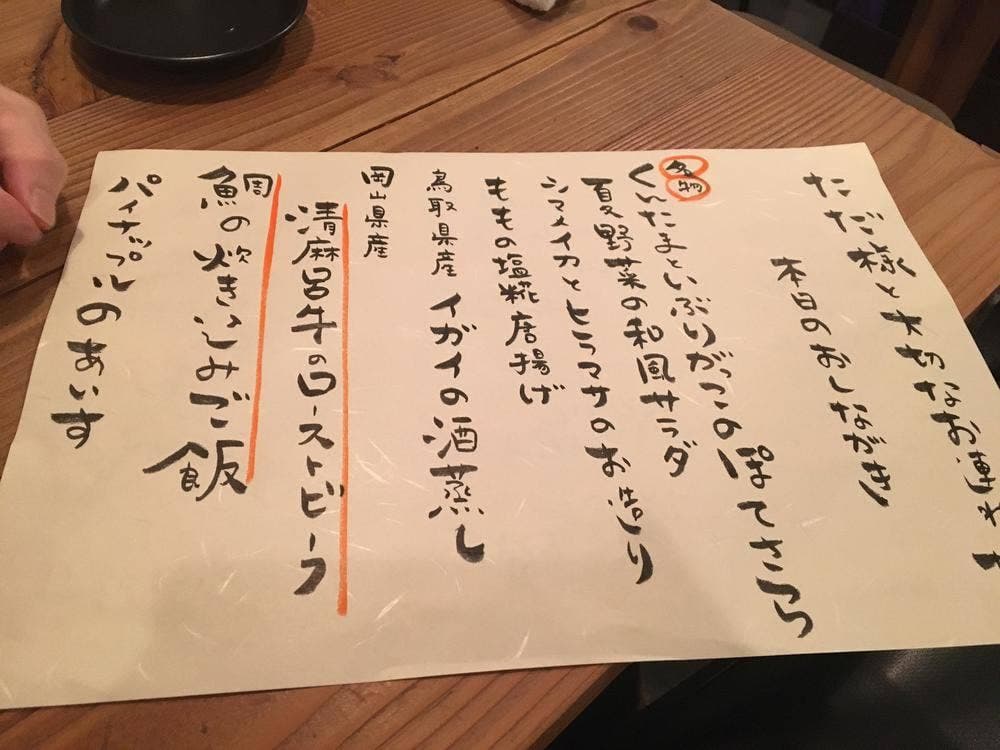 ただ様と大切なお連れ
本日のおしながき
名物
くんたまといぶりがっこのぽてさら
夏野菜の和風サラダ
シマメイカとヒラマサのお造り
ももの塩糀唐揚げ
鳥取県産 イガイの酒蒸し
岡山県産
清麻呂牛のローストビーフ
鯛の炊き込みご飯
パイナップルのあいす